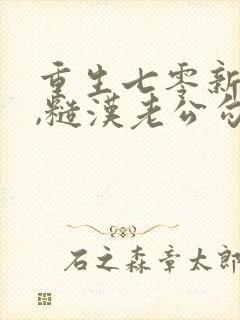 重生七零新
,糙漢老公勾
石之森章太郎